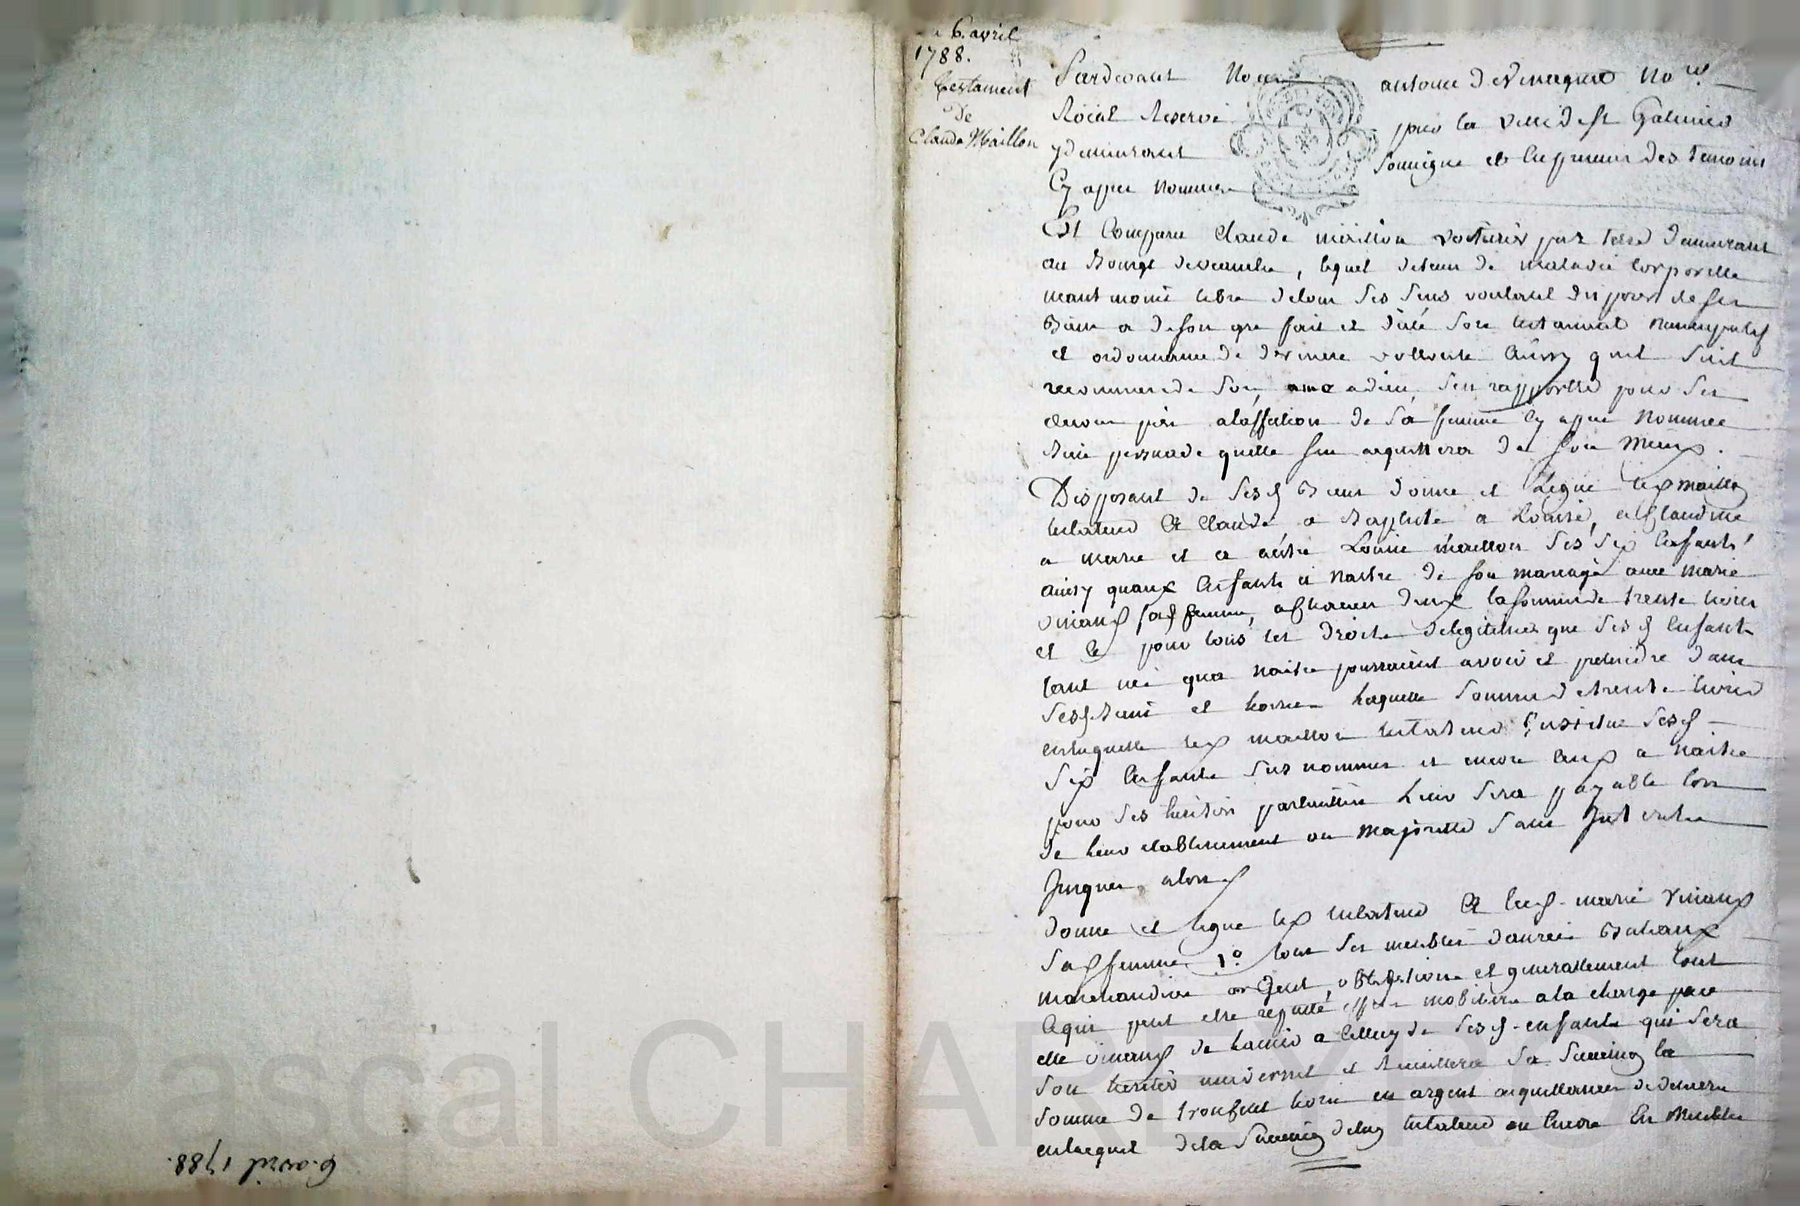 6. avril
1788.
testament
de
Claude Maillon
Pardevant Nous antoine devinegner No.re
Roial Reservé pour la ville de st Galmier
y demeurant soussigné et en presence des temoins
Cy apres nommes
Est Comparu Claude maillon voiturier par terre demeurant
au Bourg de, lequel detenu de maladie corporelle
neant moins libre de tous ses sens voulant disposer de ses
Biens a de son gre fait et dicté son testament nuncupatif
et ordonnance de derniere vollonté ainsy quil suit
recommande son ame a dieu, s'en rapporte pour ses
œuvres pies a laffection de sa femme cy apres nommée
persuadé quelle sen acquittera de son mieux.
Disposant de sesd Biens donne et legue led maillon
testateur a Claude a Baptiste a Louise, a Claudine
a marie et a autre Louise maillon ses six Enfants
ainsy quaux Enfants a naitre de son mariage avec marie
sad femme, a chacun deux la somme de trente livres
et ce pour tous les droits de legitime que sesd Enfants
tant nés qua naitre pourraient avoir et pretendre dans
sesd Biens et hoirie laquelle somme de trente livres
en laquelle led maillon testateur institue sesd
six Enfants sus nommes et encore ceux a naitre
pour ses heritiers particuliers leur sera payable lors
de leur etablissement ou majorité sans interets
Jusques alors
donne et legue led testateur a lad marie
sad femme 1.o tous ses meubles danrées Bestiaux
marchandise argent, obligations et generallement tout
ce qui peut etre reputé effets mobiliers a la charge par
elle de a celluy de sesd enfants qui sera
son heritier universel et sa succession la
somme de trois cent livres en argent
de la succession dudit testateur ou encore en meubles
6. avril 1788.
Pascal CHAREYRON